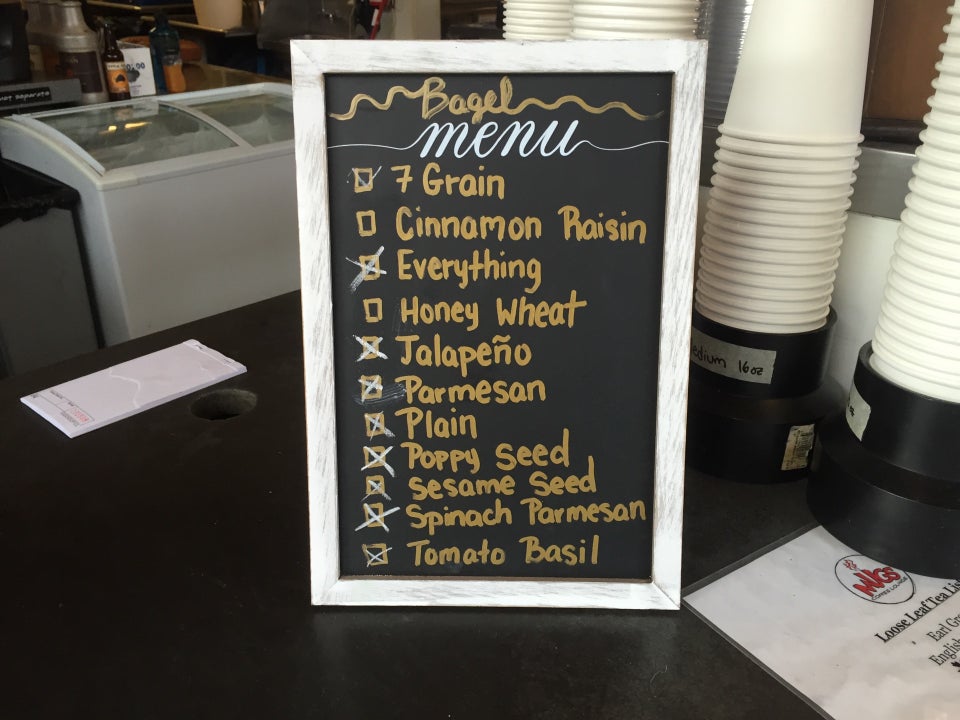 Bagel
menu
7 Grain
Cinnamon Raisin
Everything
Honey Wheat
Jalapeño
Parmesan
Plain
Poppy Seed
Sesame Seed
Spinach Parmesan
Tomato Basil
16oz
MUGS
COFFEE LOUNGE
Loose Leaf Tea
Earl
English